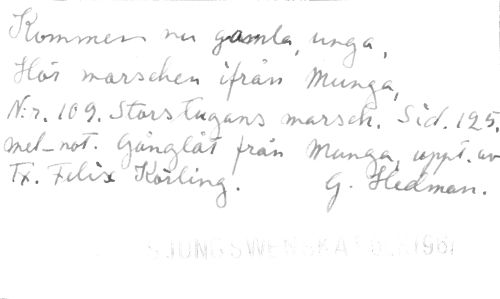 Kommen nu gamla, unga,
Hör marschen ifrån Munga,
N:r. 109. Storstugans marsch. Sid. 125.
mel-not. Gånglåt från Munga, uppt. av
Tx. Felix Körling. G. Hedman.
SJUNG SWENSKA